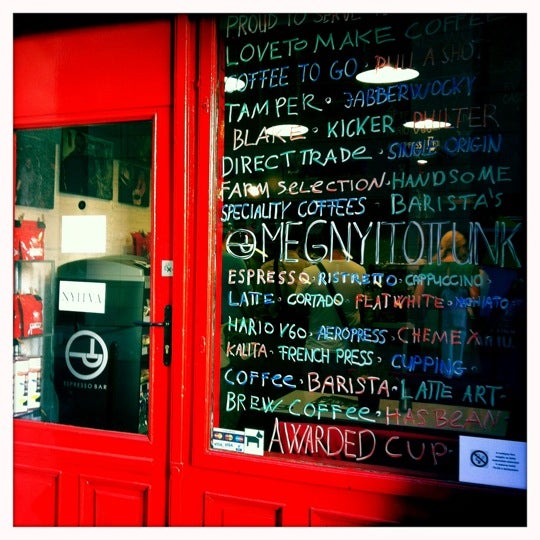 PROUD TO SERVE
LOVE TO MAKE COFFEE
COFFEE TO GO · PULL A SHOT
TAMPER · JABBERWOCKY
BLAKE · KICKER · PULITER
DIRECT TRADE · SINGLE ORIGIN
FARM SELECTION · HANDSOME
SPECIALITY COFFEES · BARISTA'S
MEGNYITOTTUNK
ESPRESSO · RISTRETTO · CAPPUCCINO ·
LATTE · CORTADO · FLATWHITE ·
HARIO V60 · AEROPRESS · CHEMEX
KALITA · FRENCH PRESS · CUPPING ·
COFFEE · BARISTA · LATTE ART ·
BREW COFFEE · HAS BEAN
AWARDED CUP
NYITVA
ESPRESSO BAR